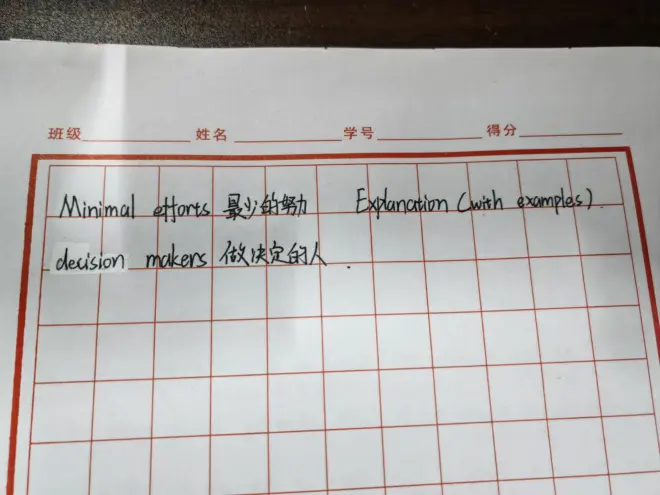 班级 姓名 学号 得分
Minimal efforts 最少的努力 Explanation (with examples).
decision makers 做决定的人.